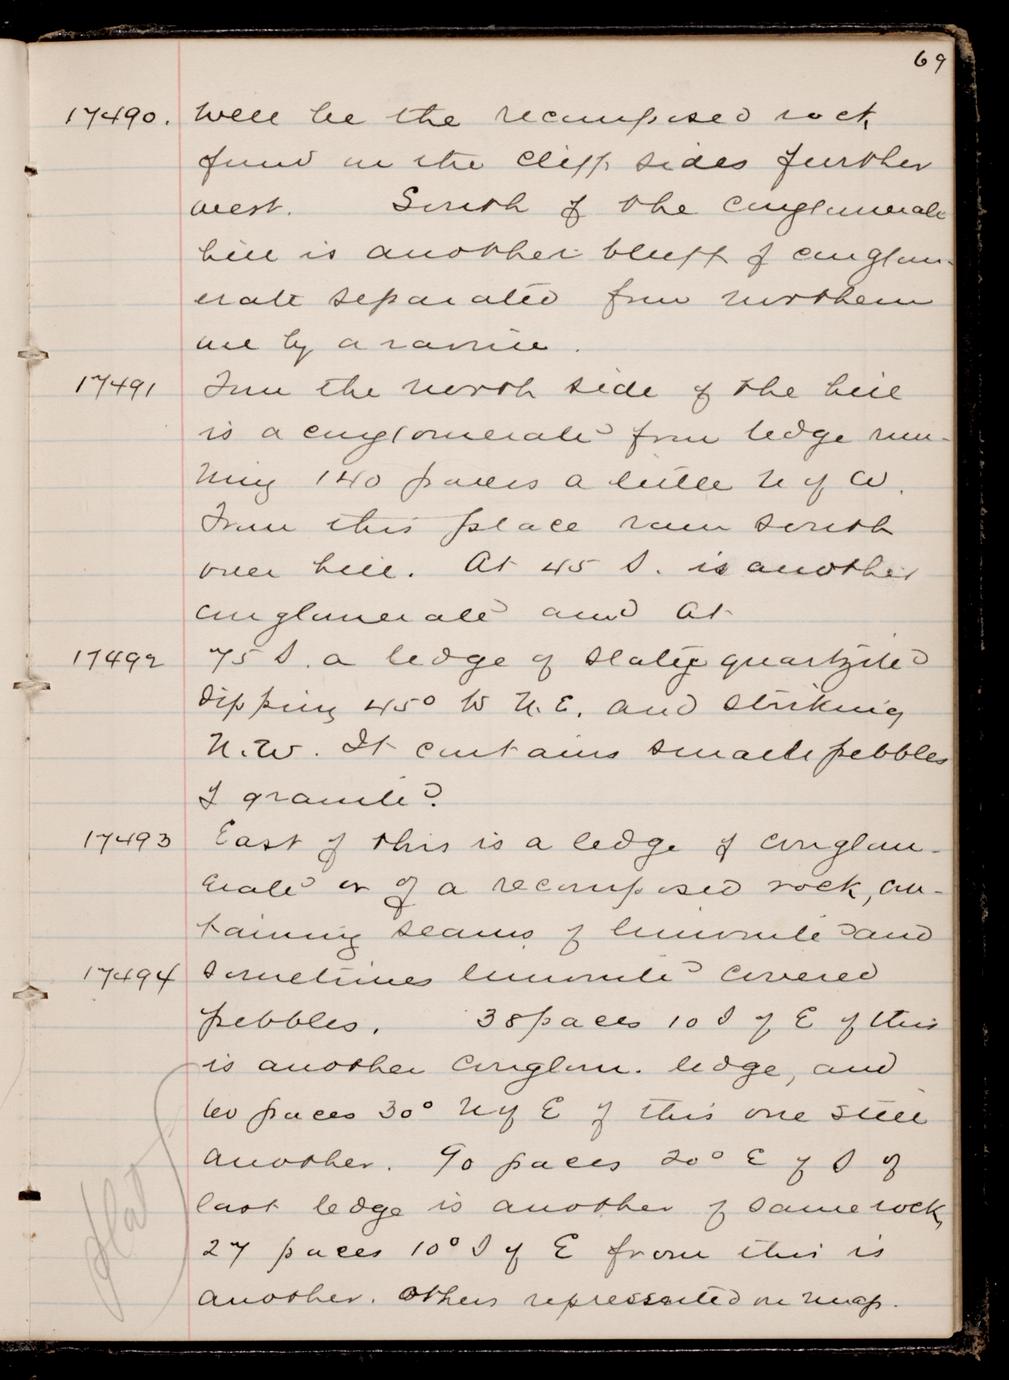 69
17490. well be the recomposed rock
found on the cliff sides further
west. South of the conglomerate
hill is another bluff of conglom-
erate separated from northern
one by a ravine.
17491 From the north side of the hill
is a conglomerate from ledge run-
ning 140 paces a little N of W.
From this place ran south
over hill. At 45 S. is another
conglomerate and at
17492 75 S. a ledge of slaty quartzite
dipping 45° to N.E. and striking
N.W. It contains small pebbles
of granite?
17493 East of this is a ledge of conglom-
erate or of a recomposed rock, con-
taining seams of limonite and
17494 sometimes limonite covered
pebbles. 38 paces 10 S of E of this
is another conglom. ledge, and
60 paces 30° N of E of this one still
another. 90 paces 20° E of S of
last ledge is another of same rock,
27 paces 10° S of E from this is
another. Others represented on map.